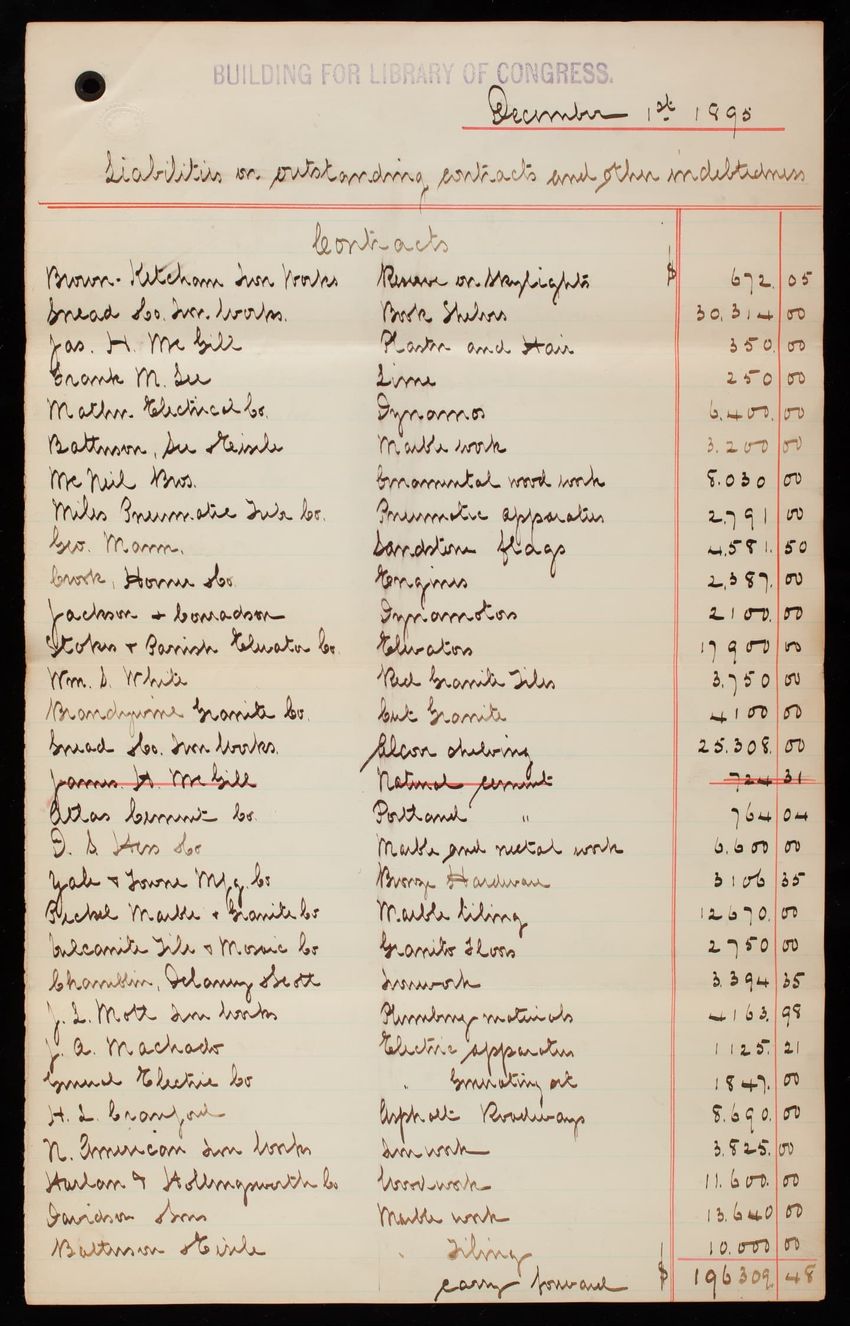 BUILDING FOR LIBRARY OF CONGRESS.
December 1st 1895
Liabilities on outstanding contracts and other indebtedness
Contracts
Brown-Ketcham Iron Works Reserve on Skylights $ 672.05
Snead & Co. Iron Works. Book Shelves 30,314 00
Jas. H. McGill Plaster and Hair 350.00
Frank M. Lee Lime 250 00
Mather Electrical Co. Dynamos 6,400.00
Batterson, See & Eisele Marble work 3.200 00
McNeil Bros. Ornamental wood work 8.030 00
Miles Pneumatic Tube Co. Pneumatic apparatus 2,791 00
Geo. Mann. Sandstone flags 4,581.50
Crook, Horner & Co. Engines 2,387.00
Jackson & Conradson Dynamotors 2100.00
Stokes & Parrish Elevator Co. Elevators 17900 00
Wm. S. White Red Granite Tiles 3,750 00
Brandywine Granite Co. Cut Granite 4100 00
Snead & Co. Iron Works. Alcove shelving 25.308.00
James H McGill Natural cement 724 31
Atlas Cement Co. Portland " 764 04
D. S. Hess & Co Marble and metal work 6.600 00
Yale & Towne Mfg. Co Bronze Hardware 3106 35
Peckel Marble & Granite Co Marble tiling 12670.00
Vulcanite Tile & Mosaic Co Granito Floors 2750 00
Chamblin, Delaney & Scott Ironwork 3.394 35
J. L. Mott Iron Works Plumbing materials 4163.98
J. A. Machado Electric apparatus 1125.21
General Electric Co " Generating set 1847.00
H. L. Cranford Asphalt Roadways 8.690.00
N. American Iron Works Iron work 3.825.00
Harlan & Hollingsworth Co Woodwork 11.600.00
Davidson & Sons Marble work 13.640 00
Batterson & Eisele " Tiling 10.000 00
carry forward $ 196309.48